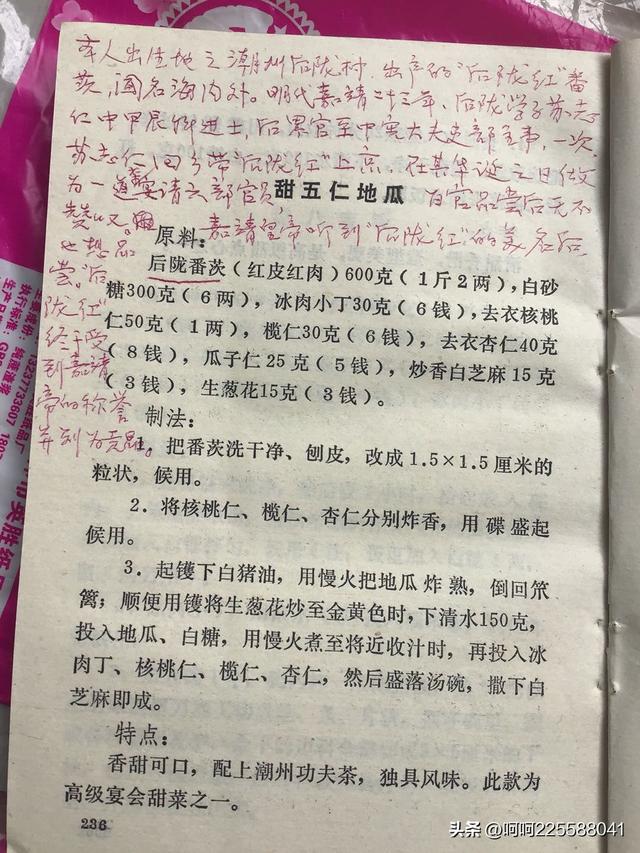 本人出生地之潮州后陇村，出产的“后陇红”番
茨，闻名海内外。明代嘉靖二十三年，后陇学子苏志
仁中甲辰科进士后累官至中宪大夫吏部主事，一次，
苏志仁回乡带“后陇红”上京，在其华诞之日做
为一道宴请六部官员 百官品尝后无不
赞叹。嘉靖皇帝听到“后陇红”的美名后
也想品
尝。“后
陇红”
终于受
到嘉靖
帝的称誉
并列为贡品。
甜五仁地瓜
原料：
后陇番茨（红皮红肉）600克（1斤2两），白砂
糖300克（6两），冰肉小丁30克（6钱），去衣核桃
仁50克（1两），榄仁30克（6钱），去衣杏仁40克
（8钱），瓜子仁25克（5钱），炒香白芝麻15克
（3钱），生葱花15克（3钱）。
制法：
1．把番茨洗干净、刨皮，改成1.5×1.5厘米的
粒状，候用。
2．将核桃仁、榄仁、杏仁分别炸香，用碟盛起
候用。
3．起镬下白猪油，用慢火把地瓜炸熟，倒回笊
篱；顺便用镬将生葱花炒至金黄色时，下清水150克，
投入地瓜、白糖，用慢火煮至将近收汁时，再投入冰
肉丁、核桃仁、榄仁、杏仁，然后盛落汤碗，撒下白
芝麻即成。
特点：
香甜可口，配上潮州功夫茶，独具风味。此款为
高级宴会甜菜之一。
236
头条 @呵呵225588041